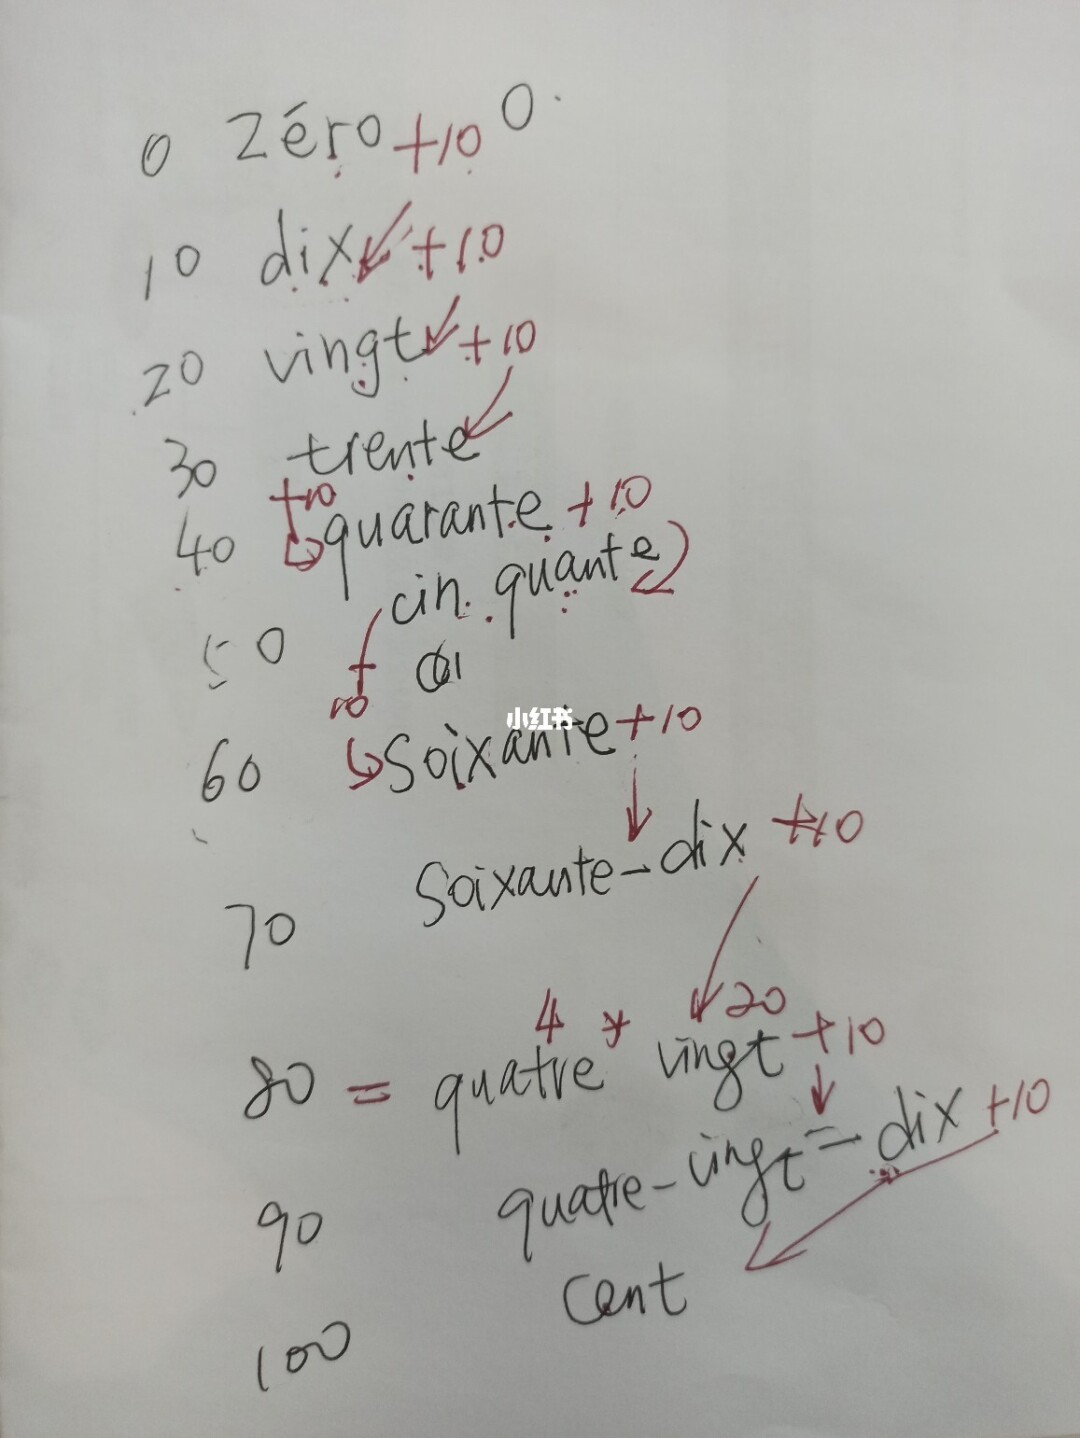 0 zéro +10 0.
10 dix +10
20 vingt +10
30 trente
+10
40 quarante +10
cinquante
50
+
10
小红书
60 soixante +10
70 soixante-dix +10
4 * 20
80 = quatre vingt +10
90 quatre-vingt-dix +10
100 cent